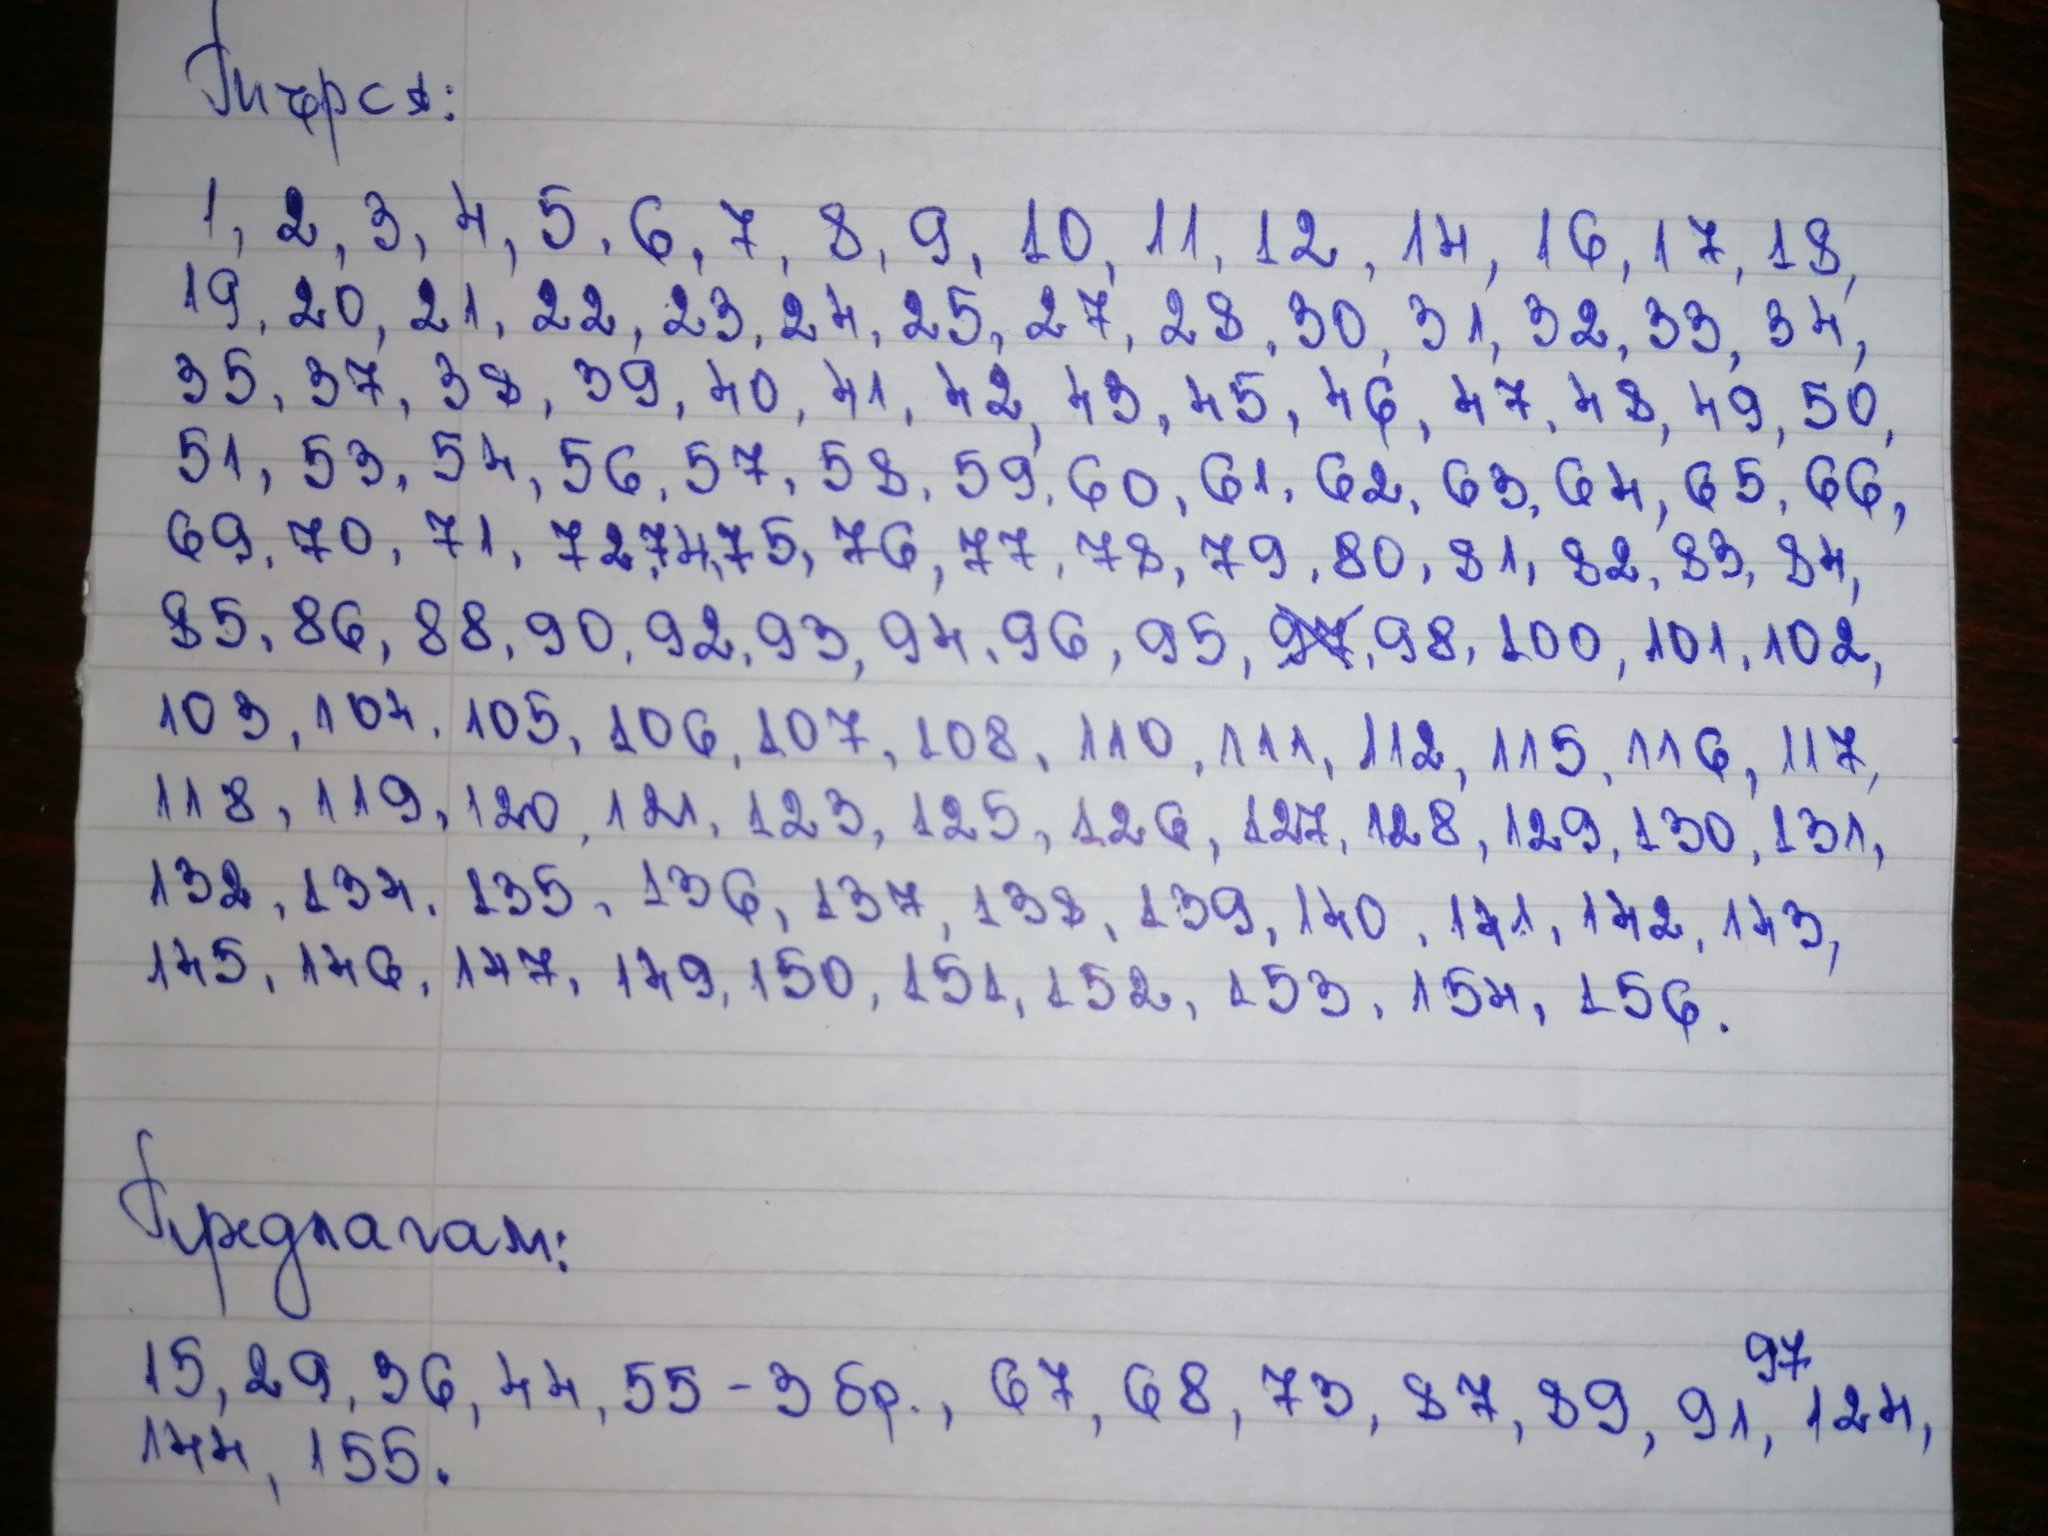 Търся:
1, 2, 3, 4, 5, 6, 7, 8, 9, 10, 11, 12, 14, 16, 17, 18,
19, 20, 21, 22, 23, 24, 25, 27, 28, 30, 31, 32, 33, 34,
35, 37, 38, 39, 40, 41, 42, 43, 45, 46, 47, 48, 49, 50,
51, 53, 54, 56, 57, 58, 59, 60, 61, 62, 63, 64, 65, 66,
69, 70, 71, 72, 74, 75, 76, 77, 78, 79, 80, 81, 82, 83, 84,
85, 86, 88, 90, 92, 93, 94, 96, 95, 97, 98, 100, 101, 102,
103, 104, 105, 106, 107, 108, 110, 111, 112, 115, 116, 117,
118, 119, 120, 121, 123, 125, 126, 127, 128, 129, 130, 131,
132, 134, 135, 136, 137, 138, 139, 140, 141, 142, 143,
145, 146, 147, 149, 150, 151, 152, 153, 154, 156.
Предлагам:
15, 29, 36, 44, 55 - 3 бр., 67, 68, 73, 87, 89, 91, 97, 124,
144, 155.